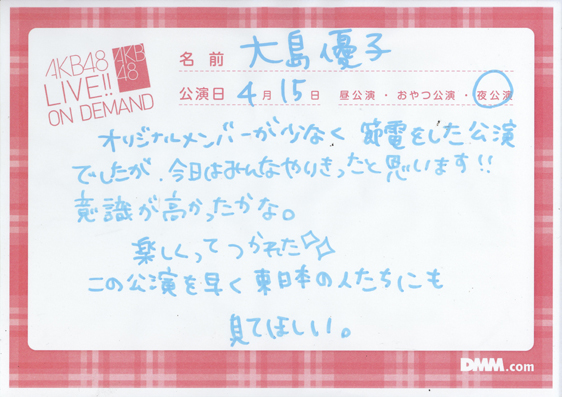 AKB48
LIVE!!
ON DEMAND
AKB
48
名前 大島優子
公演日 4月15日 昼公演・おやつ公演・夜公演
オリジナルメンバーが少なく 節電をした公演
でしたが、今日はみんなやりきったと思います!!
意識が高かったかな。
楽しくってつかれた
この公演を早く東日本の人たちにも
見てほしい。
DMM.com